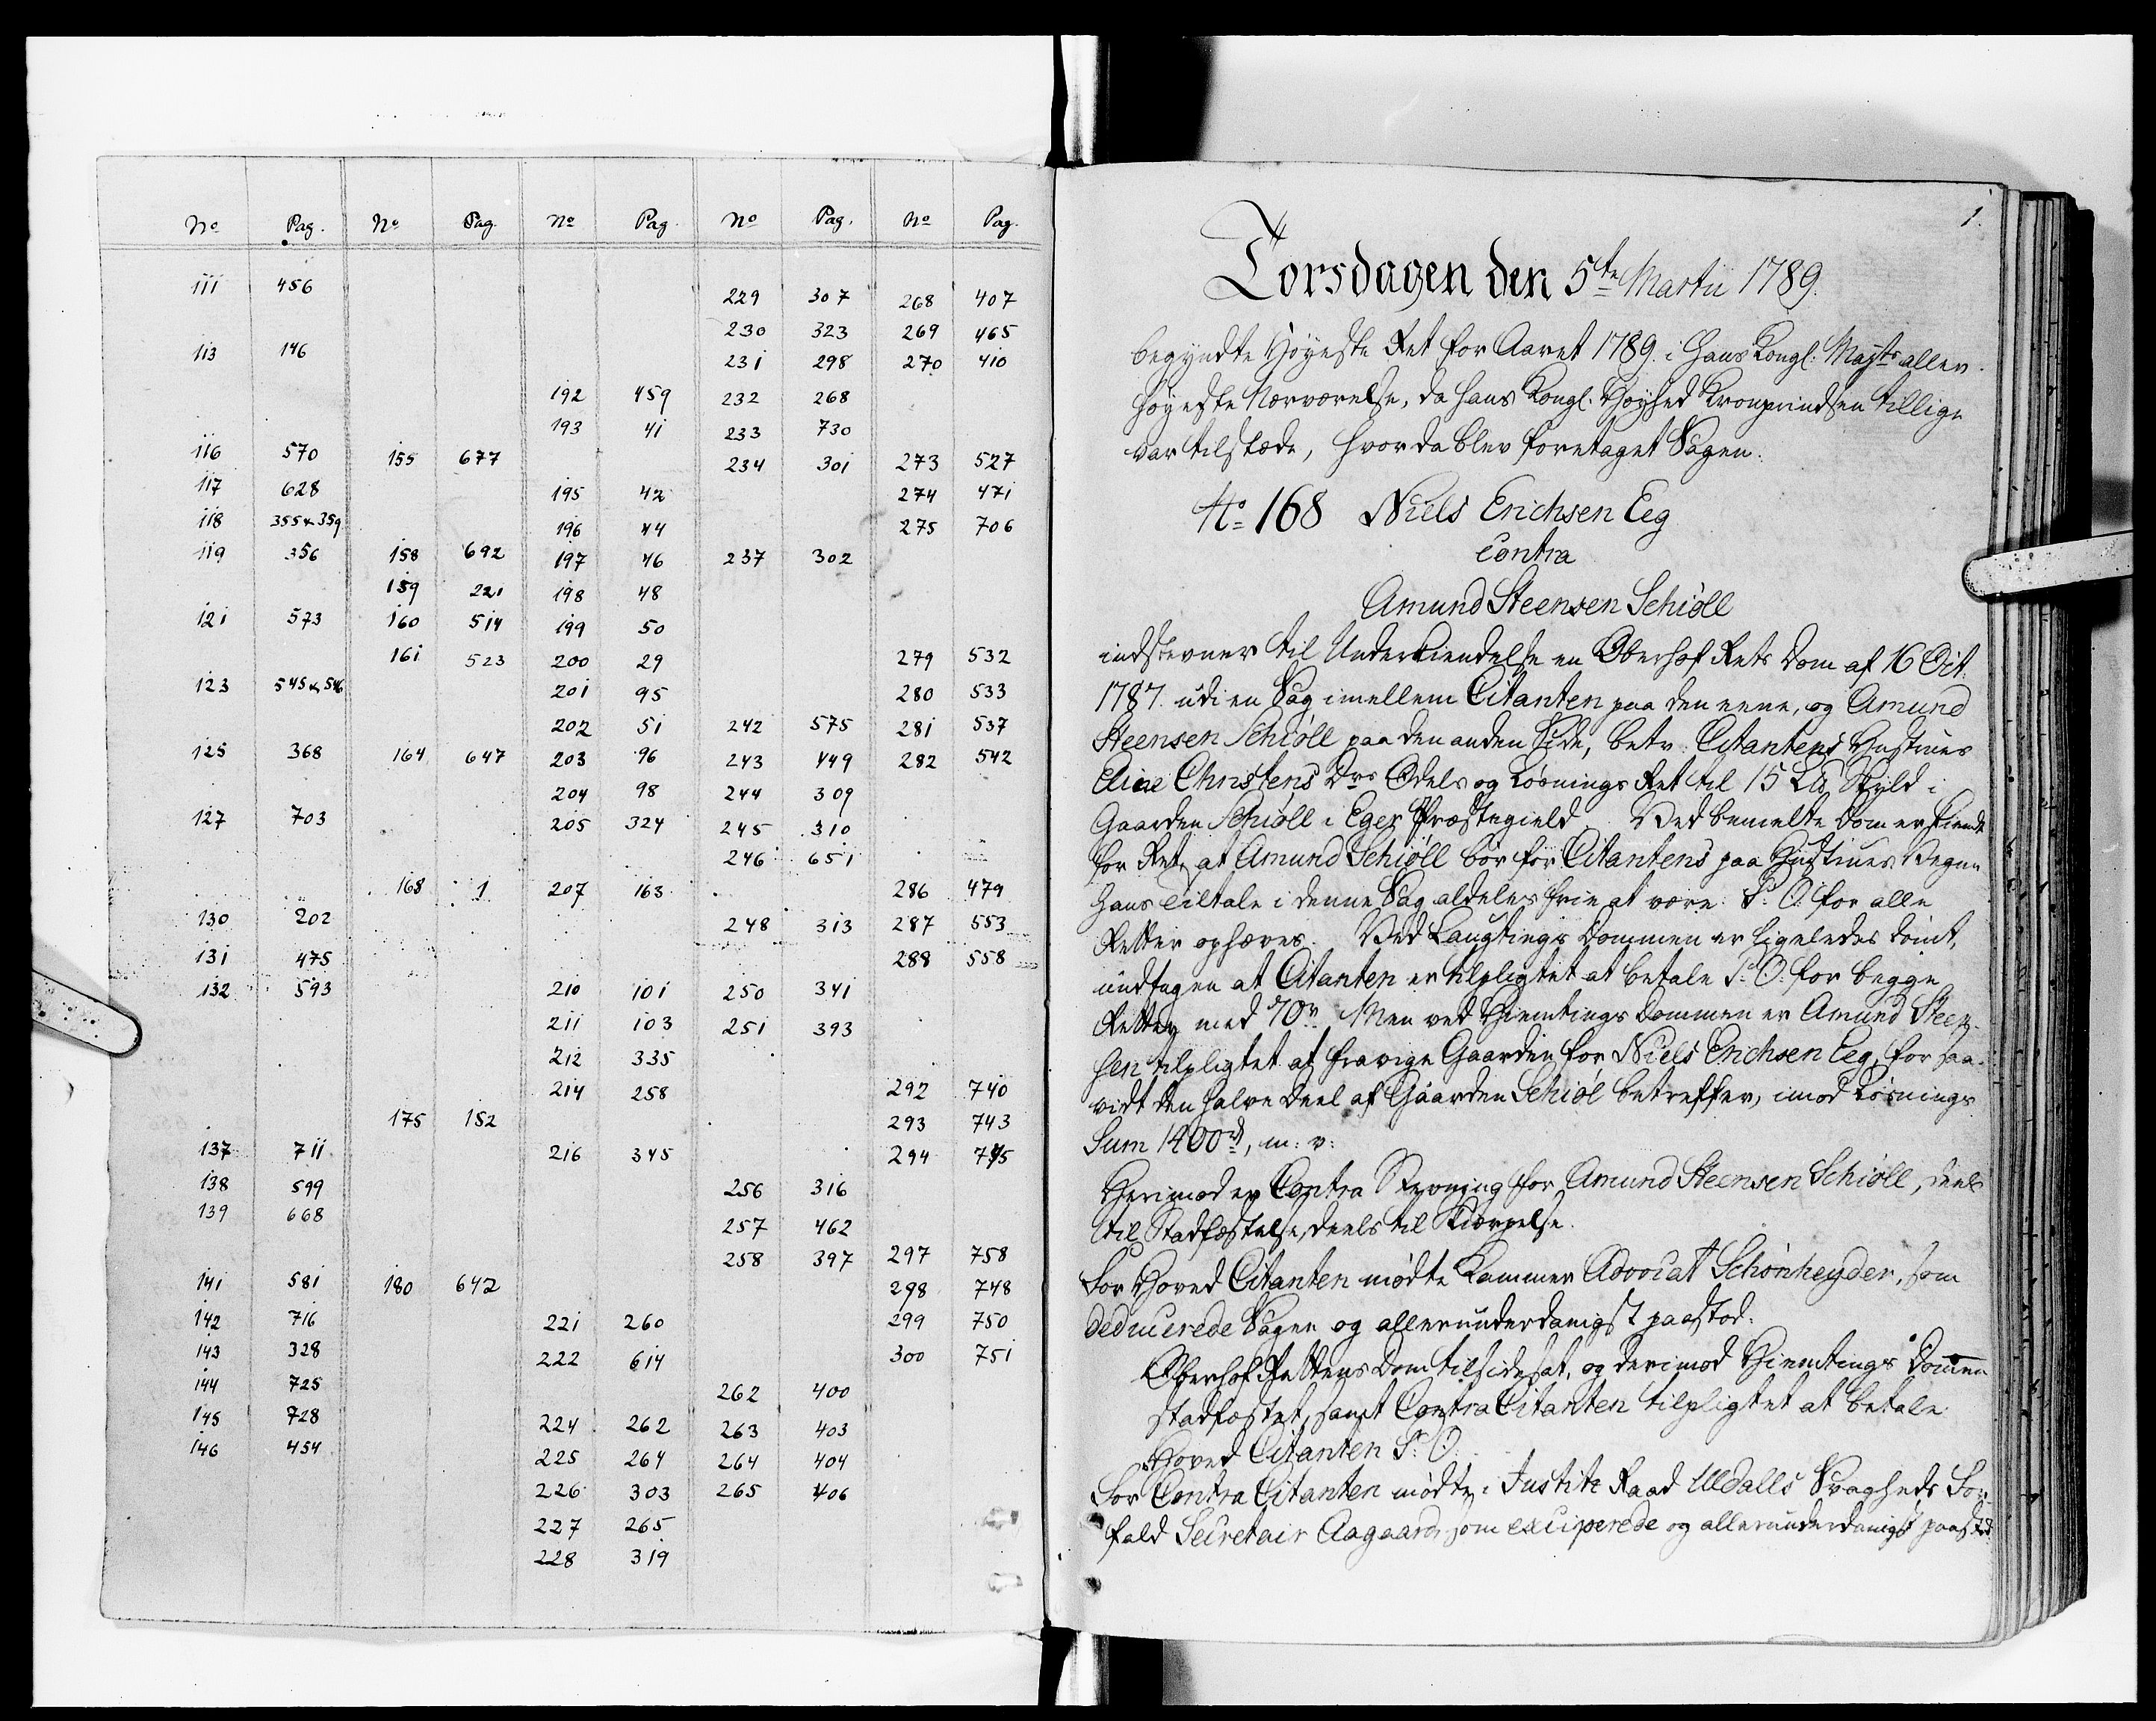 No Pag. No Pag. No Pag. No Pag. No Pag.
111 456
229 307 268 407
230 323 269 465
113 146 231 298 270 410
192 459 232 268
193 41 233 730
116 570 155 677 234 301 273 527
117 628 195 42 274 471
118 355 & 359 196 44 275 706
119 356 158 692 197 46 237 302
159 221 198 48
121 573 160 514 199 50
161 523 200 29 279 532
123 545 & 546 201 95 280 533
202 51 242 575 281 537
125 368 164 647 203 96 243 449 282 542
204 98 244 309
127 703 205 324 245 310
246 651
168 1 207 163 286 479
130 202 248 313 287 553
131 475 288 558
132 593 210 101 250 341
211 103 251 393
212 335
214 258 292 740
175 152 293 743
137 711 216 345 294 745
138 599 256 316
139 668 257 462
258 397 297 758
141 581 180 642 298 748
142 716 221 260 299 750
143 328 222 614 300 751
144 725 262 400
145 728 224 262 263 403
146 454 225 264 264 404
226 303 265 406
227 265
228 319
1.
Torsdagen den 5te Martii 1789.
begyndte Høyeste Ret for Aaret 1789. i Hans Kongl: Mayts aller
høyeste Nærværelse, da Hans Kongl. Høyhed Kronprindsen tillige
var tilstæde, hvor da blev foretaget Sagen.
No 168 Niels Erichsen Eeg
Contra
Amund Steensen Schiøll
indstevner til Underkiendelse en Oberhof Rets Dom af 16 Oct.
1787. udi en Sag imellem Citanten paa den eene, og Amund
Steensen Schiøll paa den anden Side, betr. Citantens Hustrues
Eline Christens Drs Odels og Løsnings Ret til 15 Lb Skyld i
Gaarden Schiøll i Eger Præstegield. Ved bemelte Dom er kiendt
for Ret, at Amund Schiøll bør for Citantens paa Hustrues Vegne
hans Tiltale i denne Sag aldeles frie at være. P: O: for alle
Retter ophæves. Ved Laugtings Dommen er ligeledes dømt,
undtagen at Citanten er tilpligtet at betale P: O: for begge
Retter med 70 r. Men ved Hiemtings Dommen er Amund Steen-
sen tilpligtet at fravige Gaarden for Niels Erichsen Eeg, for saa-
vidt den halve Deel af Gaarden Schiøl betreffer, imod Løsnings
Sum 1400 rd, m: v:
Herimod er Contra Stevning for Amund Steensen Schiøll, deels
til Stadfæstelse, deels til Skiærpelse.
For Hoved Citanten mødte Kammer Advocat Schønheyder, som
deducerede Sagen og allerunderdanigst paastod.
Oberhof Rettens Dom tilsidesat, og derimod Hiemtings Dommen
stadfæstet, samt Contra Citanten tilpligtet at betale
Hoved Citanten P: O:
For Contra Citanten mødte i Justitz Raad Uldalls Svagheds For-
fald Secretair Aagaard, som exciperede og allerunderdanigst paastod